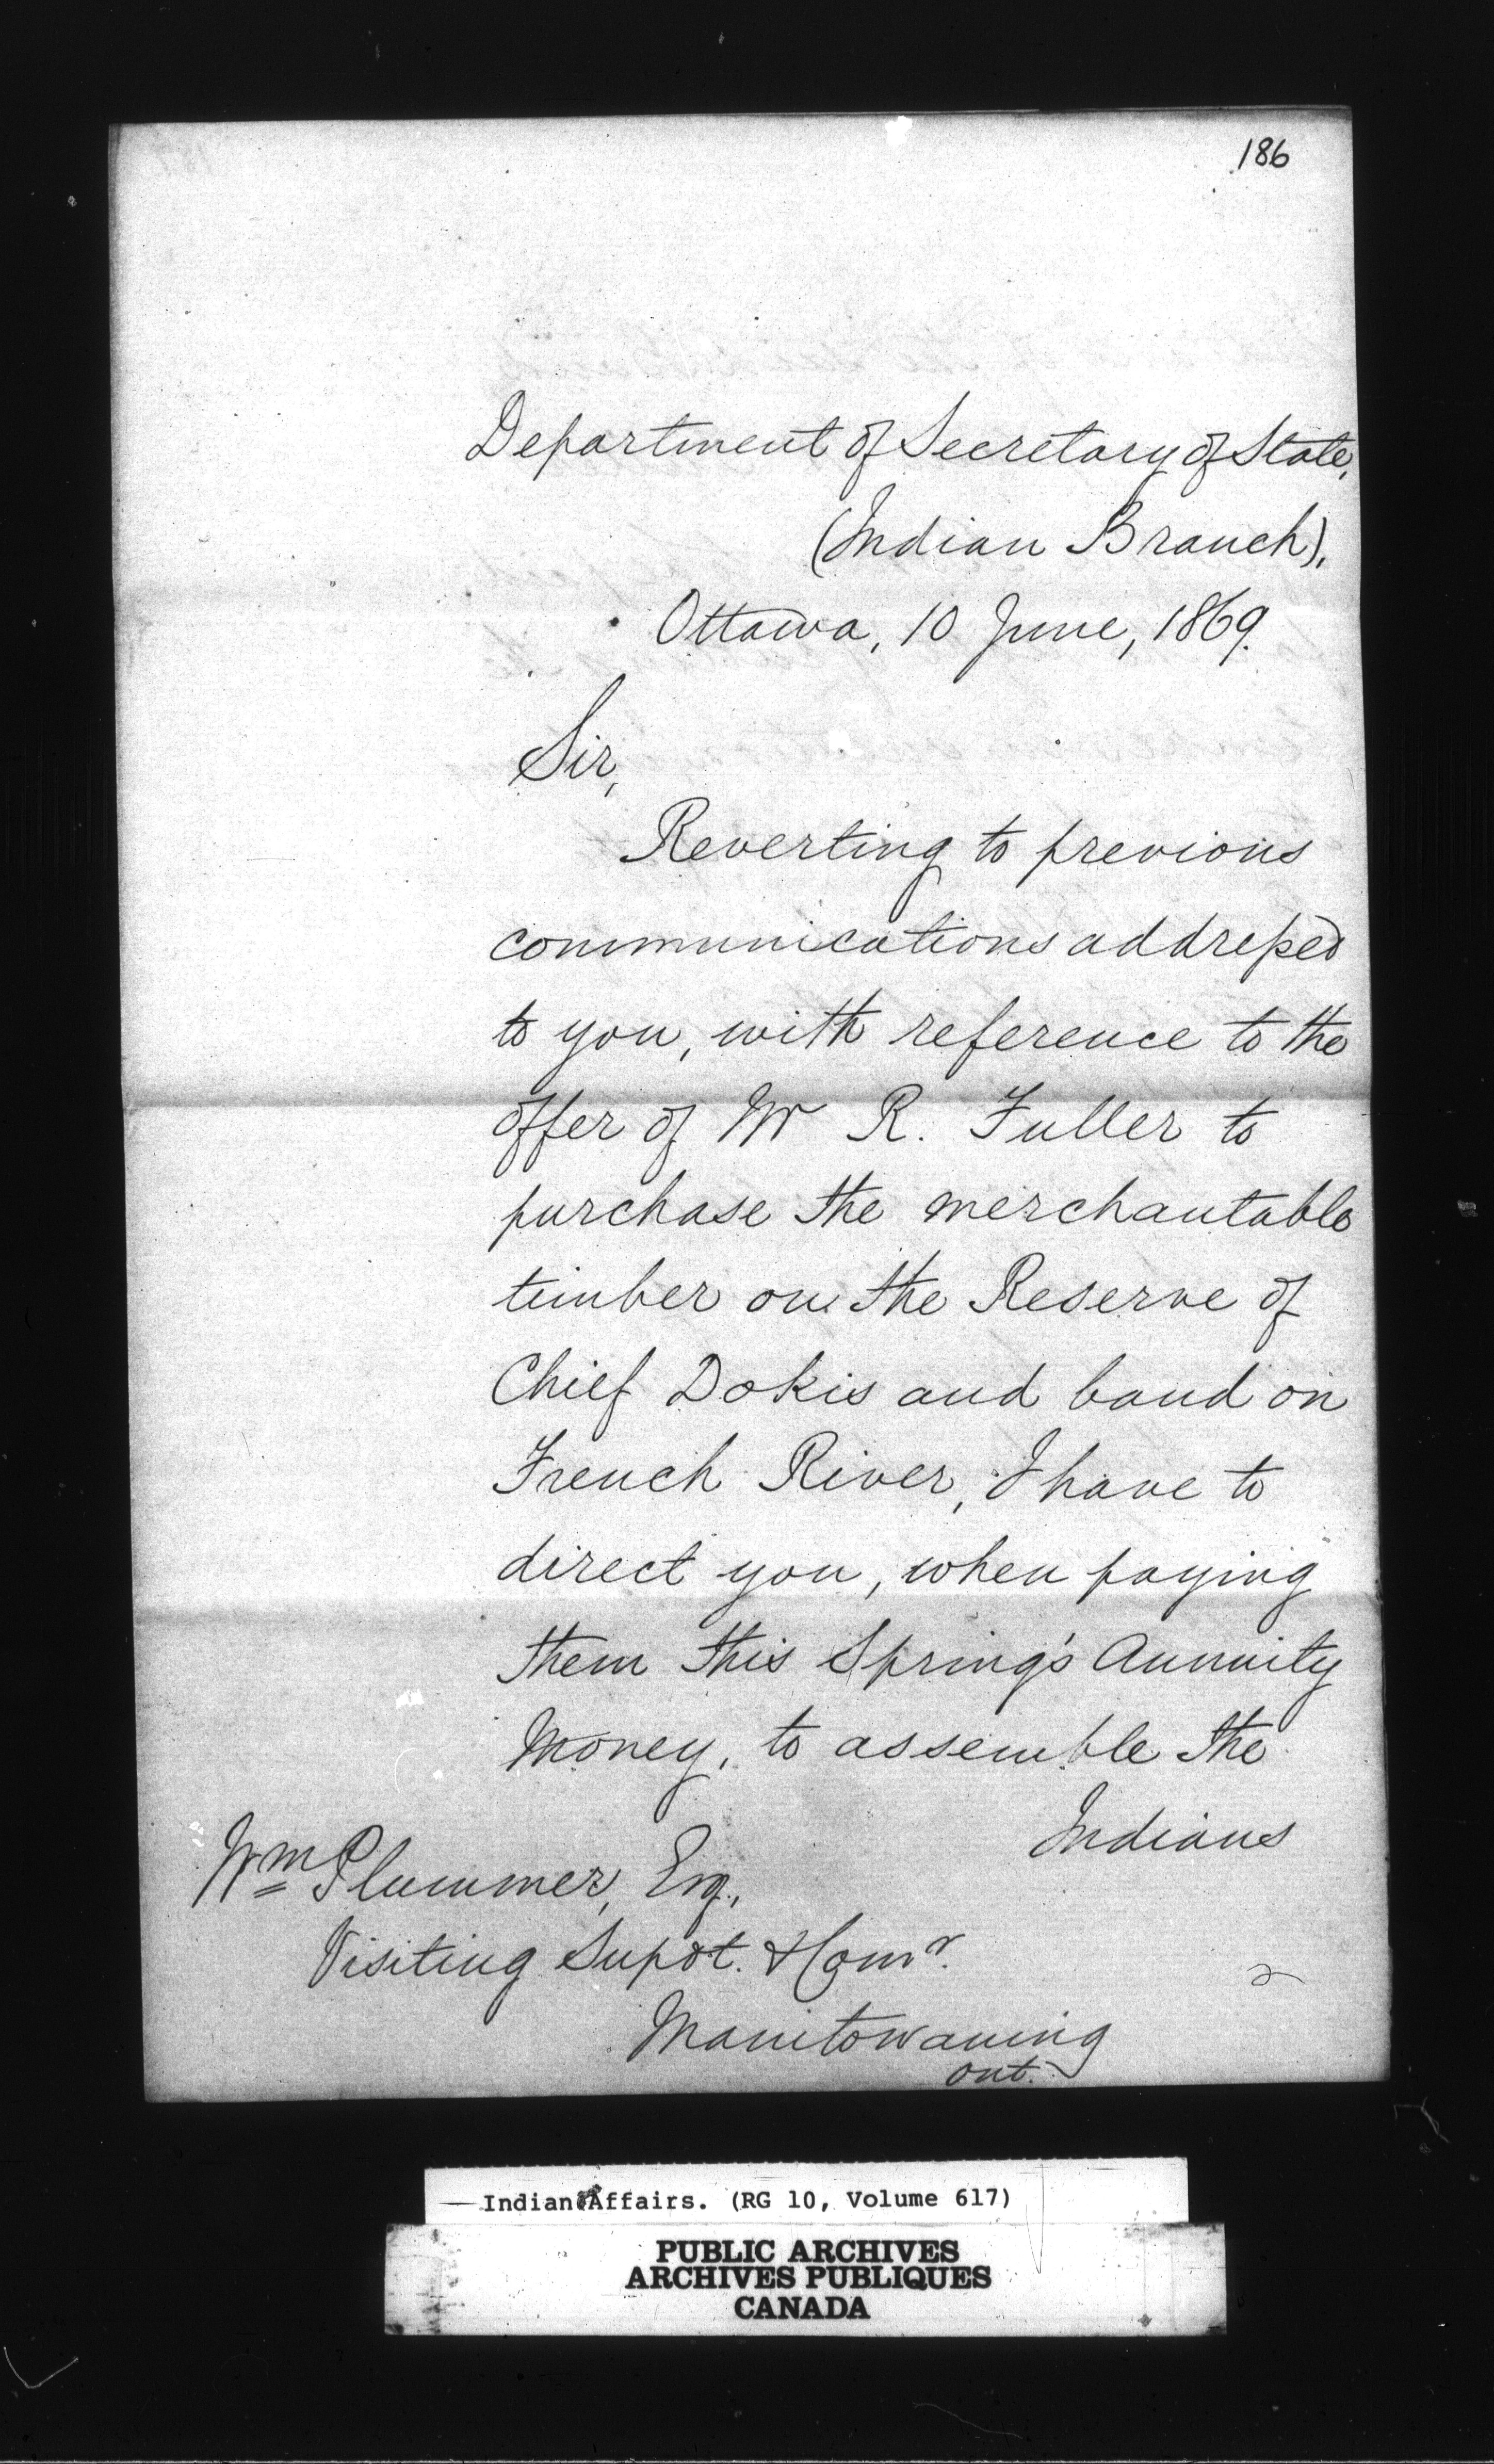 186
Department of Secretary of State,
(Indian Branch),
Ottawa, 10 June, 1869.
Sir,
Reverting to previous
communications addressed
to you, with reference to the
offer of Mr R. Fuller to
purchase the merchantable
timber on the Reserve of
Chief Dokis and band on
French River, I have to
direct you, when paying
them this Spring's Annuity
Money, to assemble the
Indians
Wm Plummer, Esq.,
Visiting Supdt. & Comr.
Manitowaning
Ont.
Indian Affairs. (RG 10, Volume 617)
PUBLIC ARCHIVES
ARCHIVES PUBLIQUES
CANADA